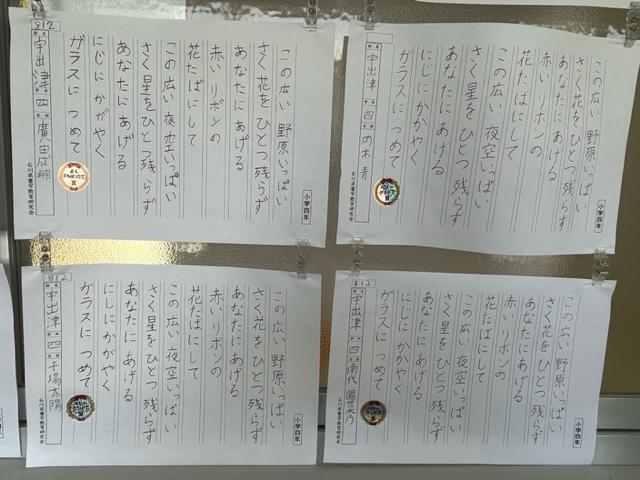 812
小学四年
この広い 野原いっぱい
さく花を ひとつ残らず
あなたにあげる
赤い リボンの
花たばにして
この広い 夜空いっぱい
さく星を ひとつ残らず
あなたに あげる
にじに かがやく
ガラスに つめて
宇出津 四 廣田成那
よくがんばったで賞
石川県書写教育研究会
小学四年
この広い 野原いっぱい
さく花を ひとつ残らず
あなたにあげる
赤い リボンの
花たばにして
この広い 夜空いっぱい
さく星を ひとつ残らず
あなたに あげる
にじに かがやく
ガラスに つめて
宇出津 四 内木青
石川県書写教育研究会
812
小学四年
この広い 野原いっぱい
さく花を ひとつ残らず
あなたに あげる
赤い リボンの
花たばにして
この広い 夜空いっぱい
さく星を ひとつ残らず
あなたに あげる
にじに かがやく
ガラスに つめて
宇出津 四 干場太陽
石川県書写教育研究会
812
小学四年
この広い 野原いっぱい
さく花を ひとつ残らず
あなたにあげる
赤い リボンの
花たばにして
この広い 夜空いっぱい
さく星を ひとつ残らず
あなたに あげる
にじに かがやく
ガラスに つめて
宇出津 四 南代
石川県書写教育研究会